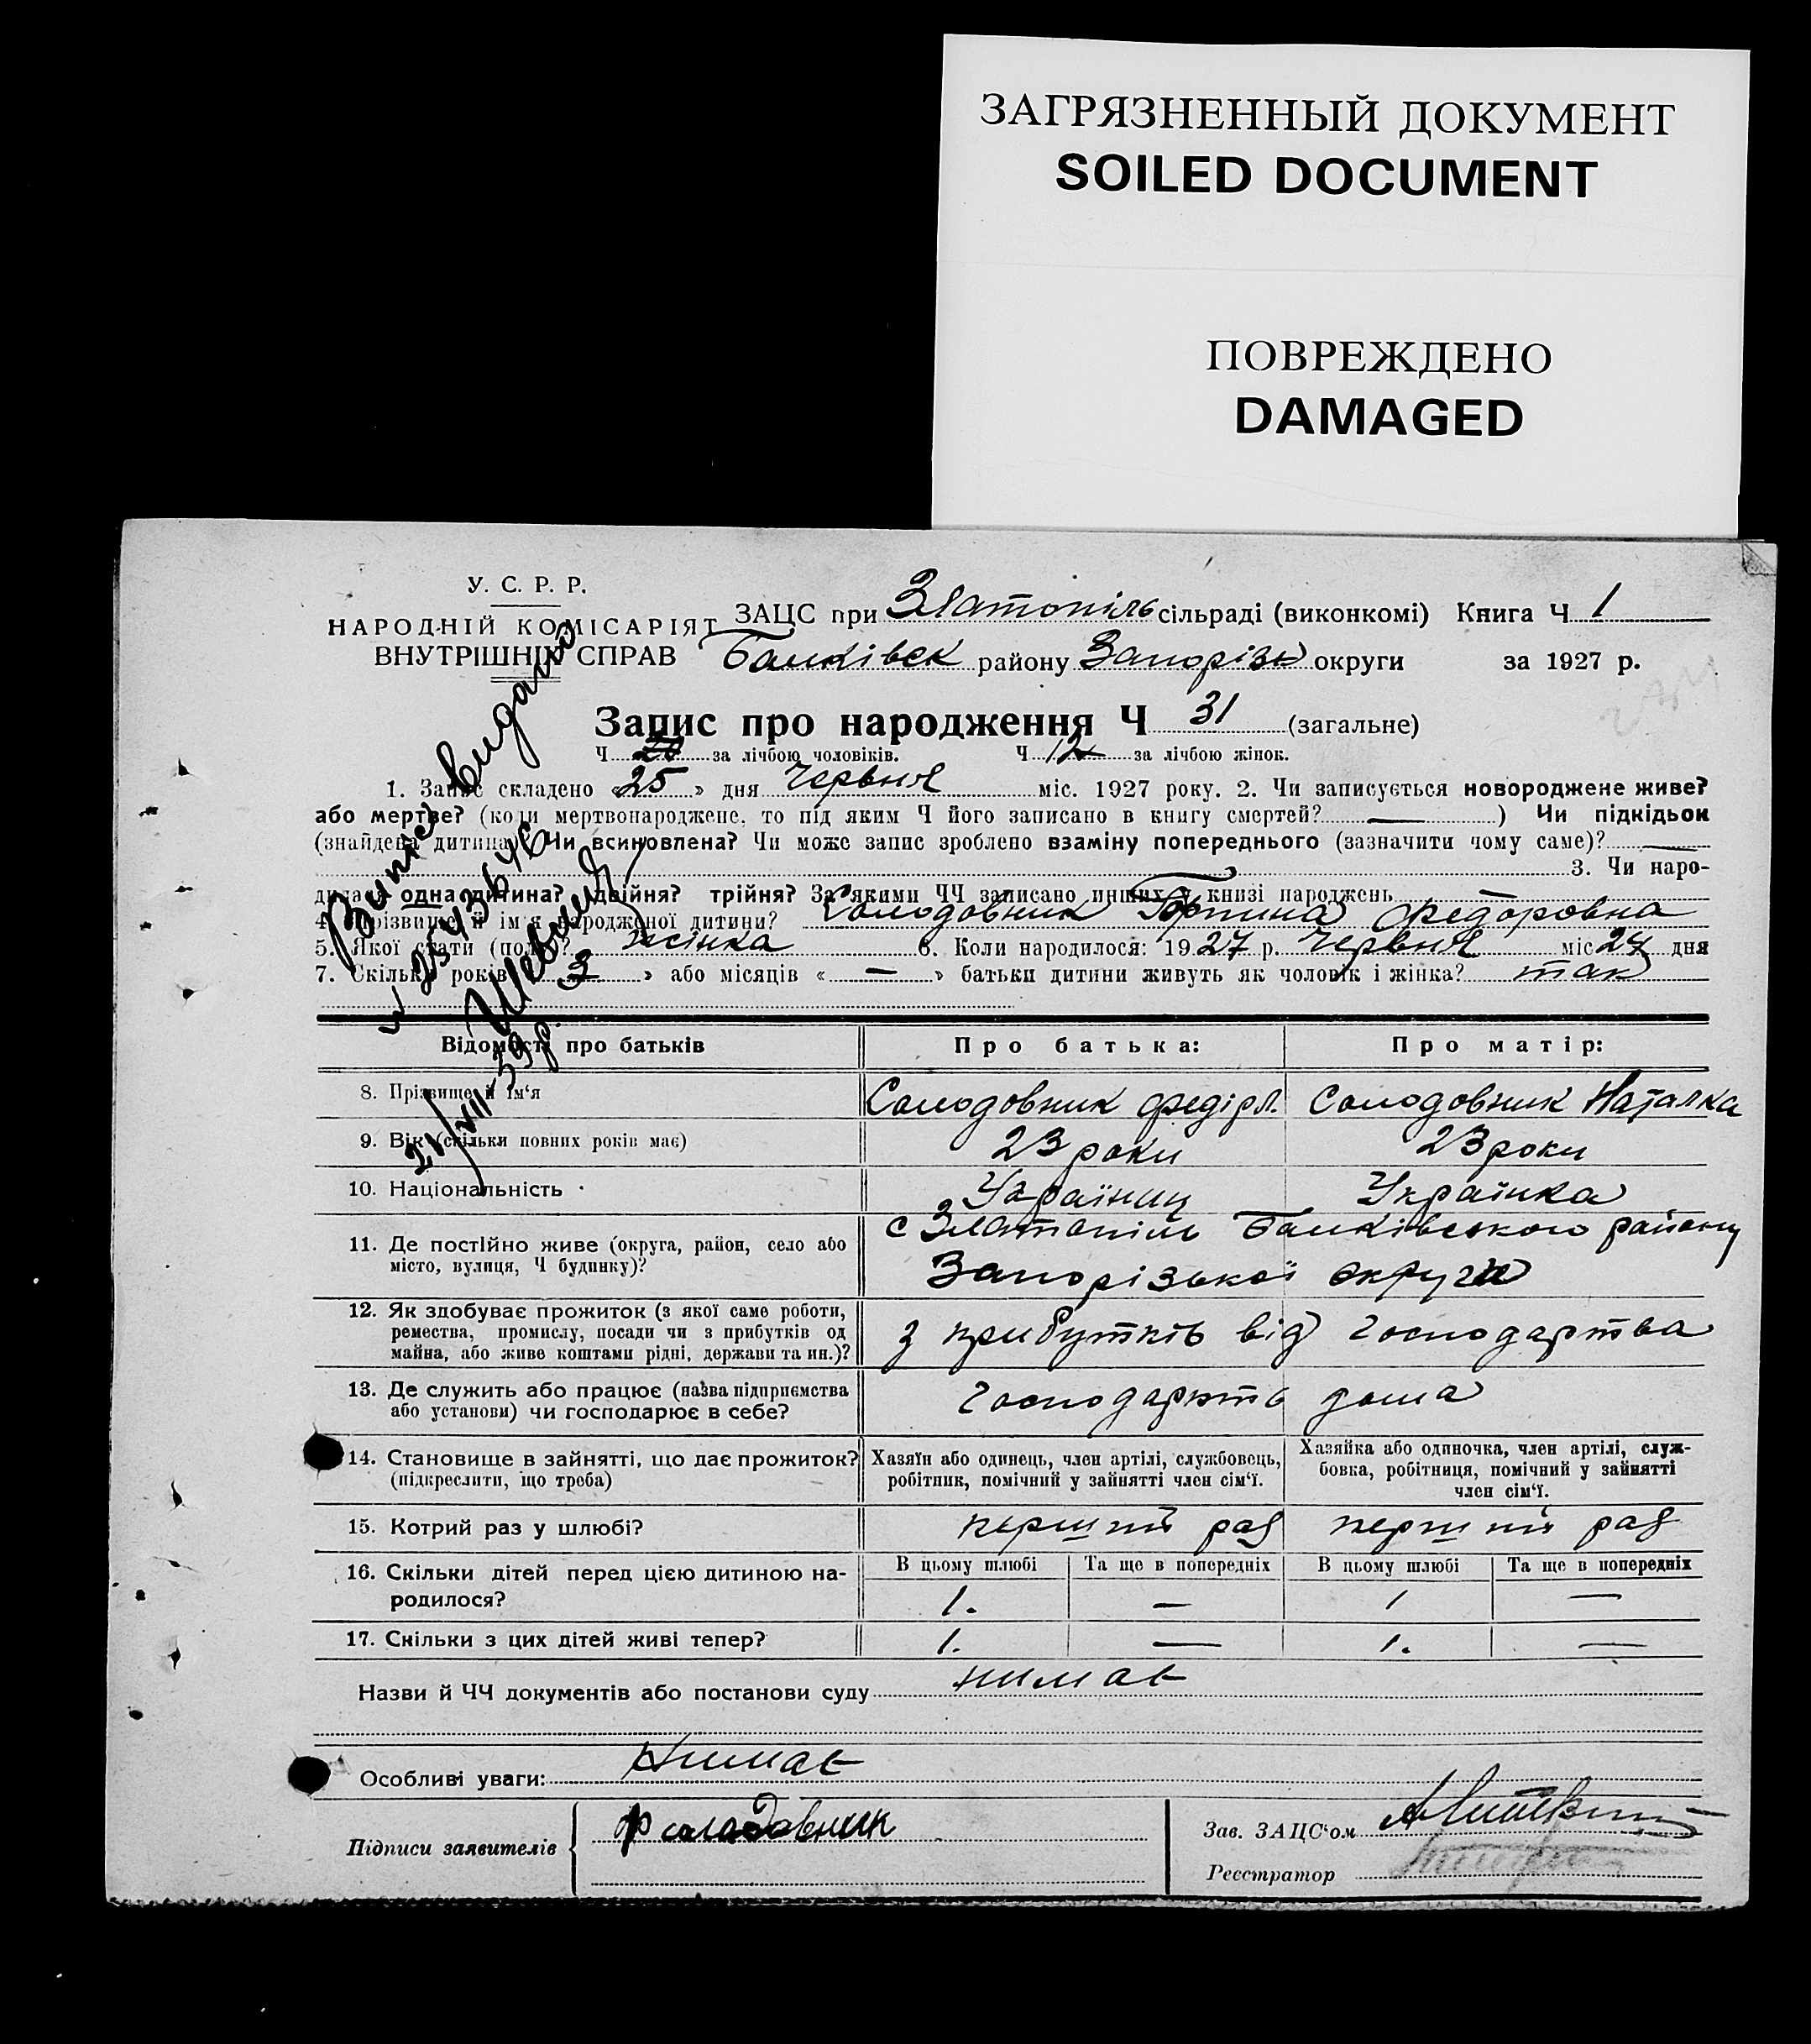 ЗАГРЯЗНЕННЫЙ ДОКУМЕНТ
SOILED DOCUMENT
ПОВРЕЖДЕНО
DAMAGED
У. С. Р. Р.
НАРОДНІЙ КОМІСАРІЯТ
ВНУТРІШНІХ СПРАВ
ЗАЦС при Златопіль сільраді (виконкомі) Книга Ч 1
Балківск району Запорізь округи за 1927 р.
Запис про народження Ч 31 (загальне)
Ч за лічбою чоловіків. Ч 12 за лічбою жінок.
1. Запис складено «25» дня червня міс. 1927 року. 2. Чи записується новороджене живе?
або мертве? (коли мертвонароджене, то під яким Ч його записано в книгу смертей? — ) Чи підкідьок
(знайдена дитина)? Чи всиновлена? Чи може запис зроблено взаміну попереднього (зазначити чому саме)? —
3. Чи наро-
дилася одна дитина? двійня? трійня? За якими ЧЧ записано инших у книзі народжень —
4. Прізвище й ім'я народженої дитини? Солодовник Федоровна
5. Якої стати (полу)? жінка 6. Коли народилося: 1927 р. червня міс 24 дня
7. Скільки років « 3 » або місяців « — » батьки дитини живуть як чоловік і жінка? так
Випис видано
№ 2543646
21/VIII-39 р.
Відомості про батьків Про батька: Про матір:
8. Прізвище й ім'я Солодовник Федір Солодовник Наталка
9. Вік (скільки повних років має) 23 роки 23 роки
10. Національність Українец Українка
11. Де постійно живе (округа, район, село або
місто, вулиця, Ч будинку)?
с Златопіль Балківського району
Запорізької округи
12. Як здобуває прожиток (з якої саме роботи,
ремества, промислу, посади чи з прибутків од
майна, або живе коштами рідні, держави та ин.)?
з прибутків від господарства
13. Де служить або працює (назва підприємства
або установи) чи господарює в себе?
дома
14. Становище в зайнятті, що дає прожиток?
(підкреслити, що треба)
Хазяїн або одинець, член артілі, службовець,
робітник, помічний у зайнятті член сім'ї.
Хазяйка або одиночка, член артілі, служ-
бовка, робітниця, помічний у зайнятті
член сім'ї.
15. Котрий раз у шлюбі? перший раз перший раз
16. Скільки дітей перед цією дитиною на-
родилося?
В цьому шлюбі Та ще в попередніх В цьому шлюбі Та ще в попередніх
1. — 1 —
17. Скільки з цих дітей живі тепер? 1. — 1. —
Назви й ЧЧ документів або постанови суду нимає
Особливі уваги: Нимає
Підписи заявителів Ф солодовник
Зав. ЗАЦС'ом
Реєстратор